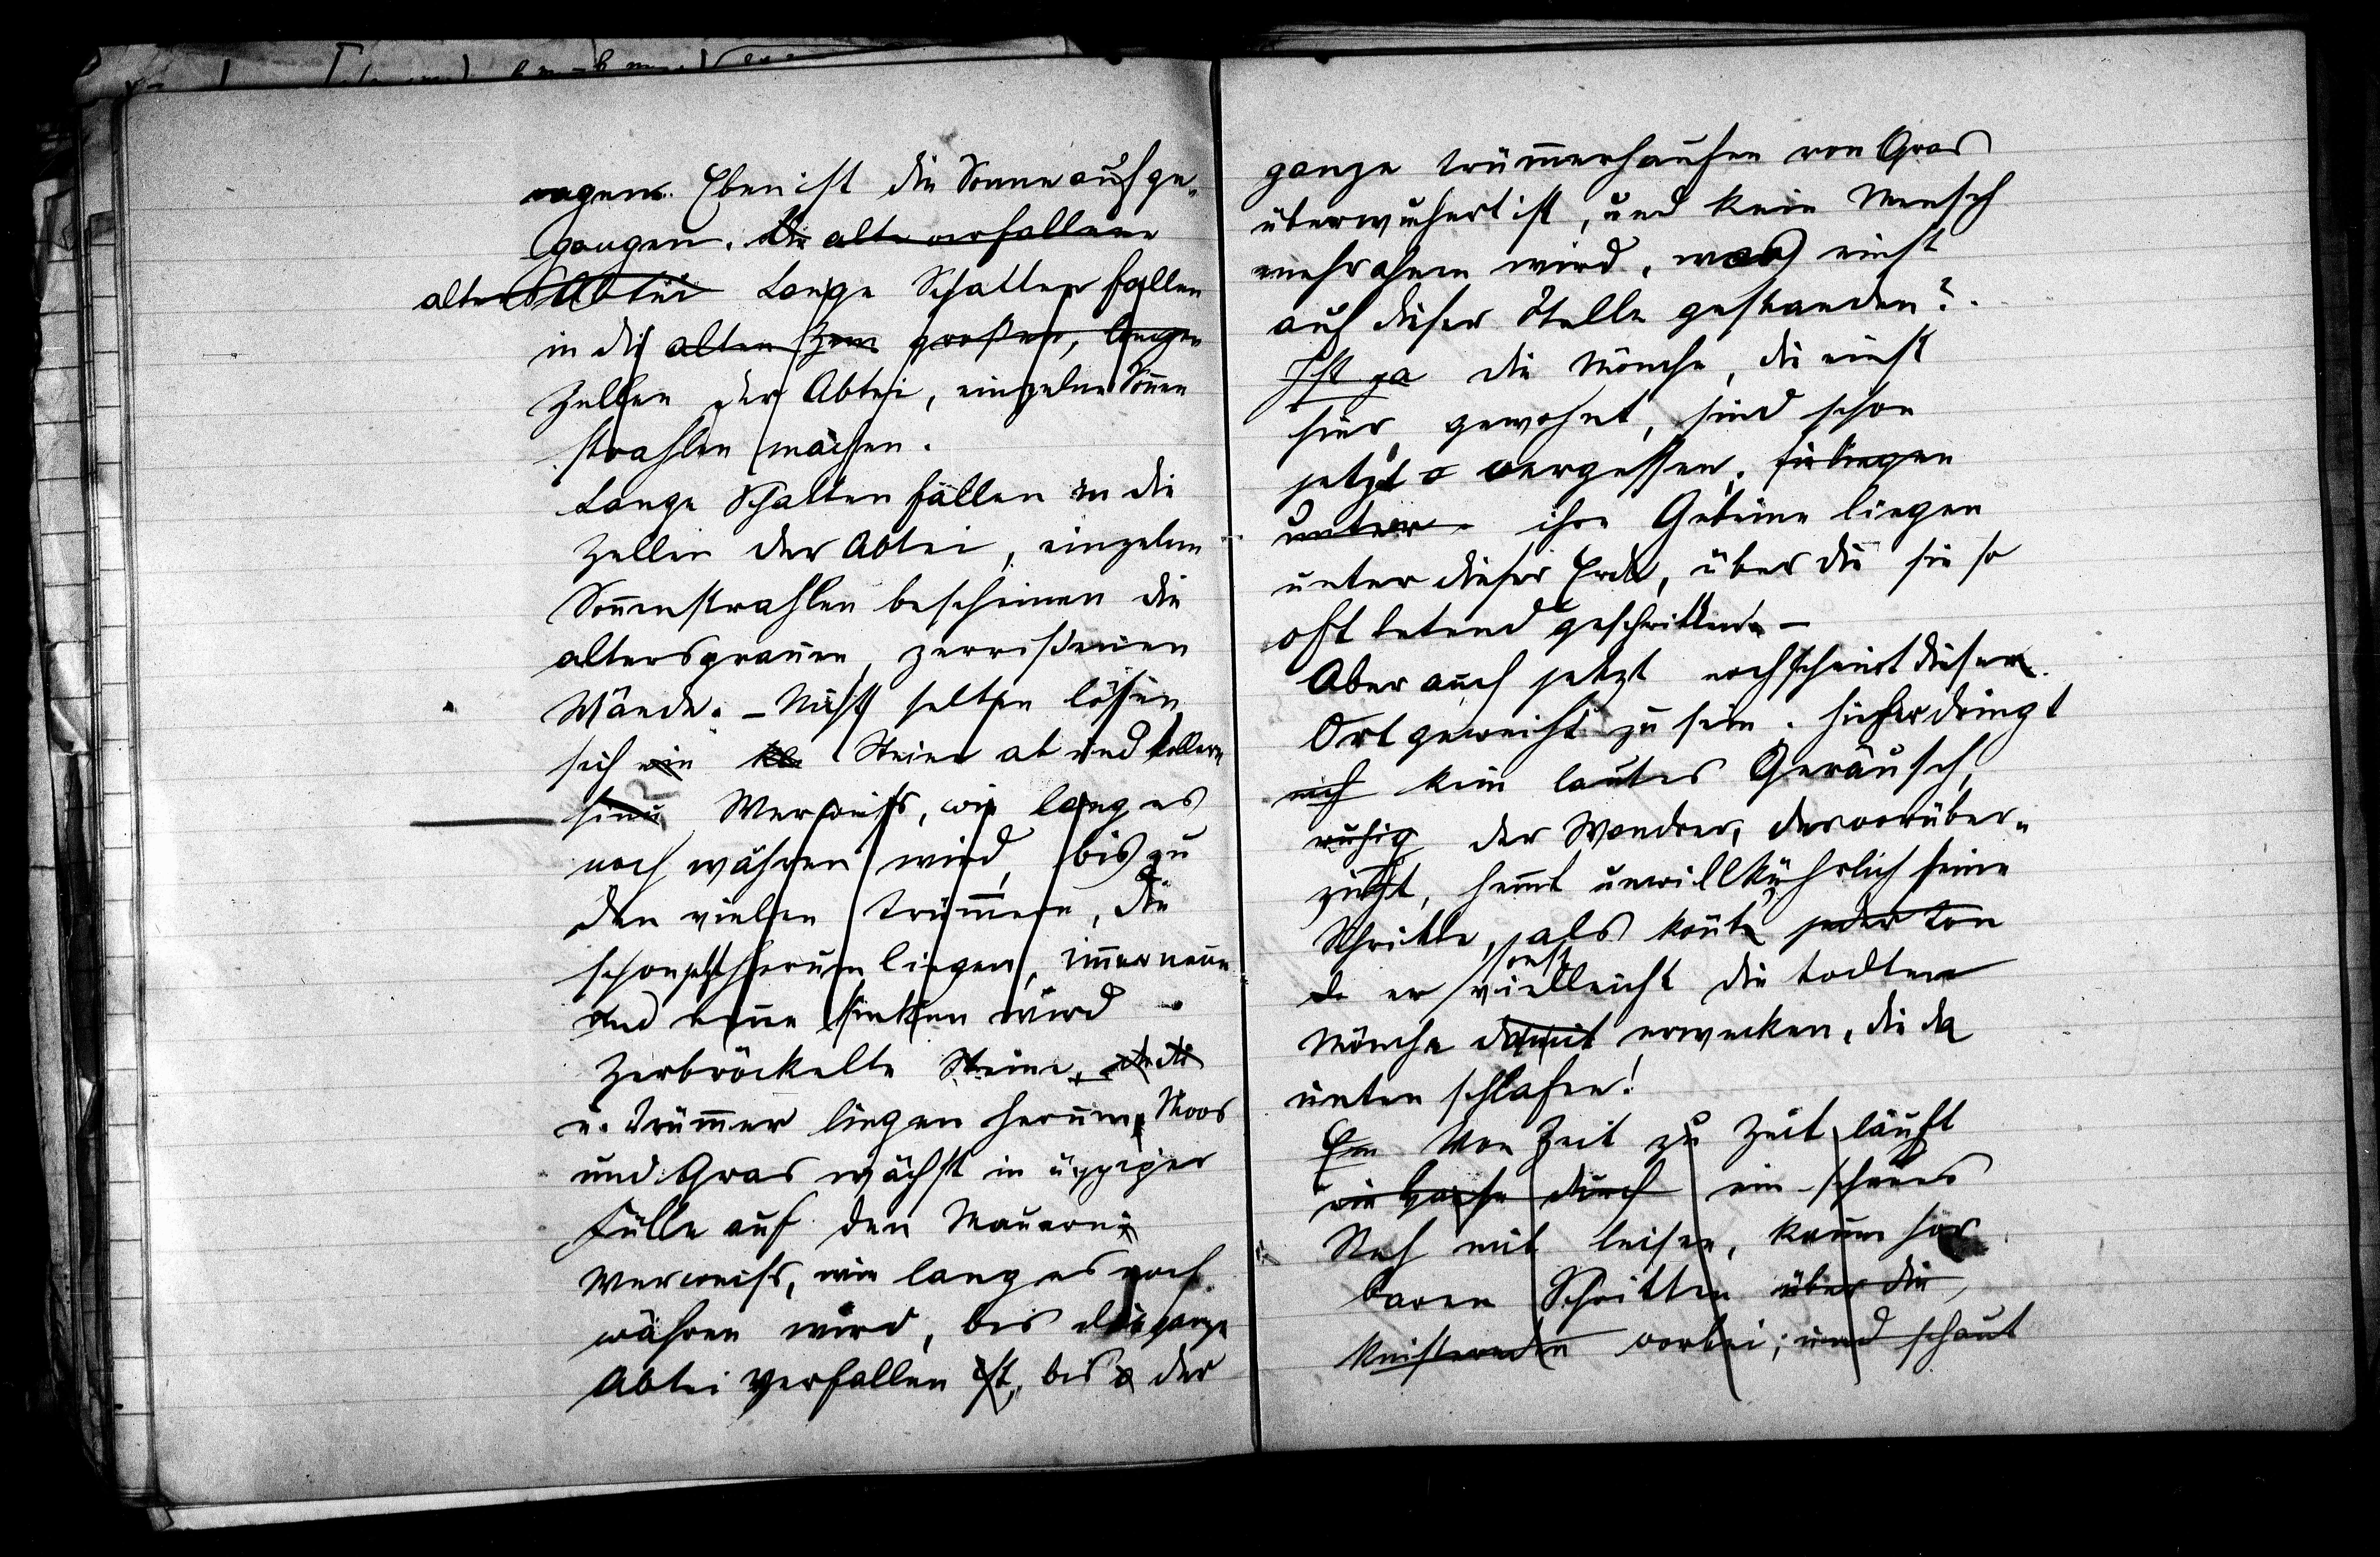 ragen. Eben ist die Sonne aufge-
gangen. Die alte verfallene
alte Abtei Lange Schatten fallen
in die alten großen, langen
Zellen der Abtei, einzelne Sonnen
strahlen machen.
Lange Schatten fallen in die
Zellen der Abtei, einzelne
Sonnenstrahlen bescheinen die
altersgrauen, zerrissenen
Wände. – Nicht selten lösen
sich ein kle Steine ab und kollern
hinu Wer weiß, wie lang es
noch währen wird, bis zu
den vielen Trümmern, die
schon jetzt herum liegen, immer neue
und neue sinken wird
Zerbröckelte Steine
u. Trümmer liegen herum, Moos
und Gras wächst in üppiger
Fülle auf den Mauern
Wer weiß, wie lang es noch
währen wird, bis die ganze
Abtei verfallen ist, bis der
ganze Trümmerhaufen von Gras
überwuchert ist, und kein Mensch
mehr ahnen wird, was einst
auf dieser Stelle gestanden?.
Ist ja die Mönche, die einst
hier gewohnt, sind schon
jetzt vergessen; sie liegen
unter ihre Gebeine liegen
unter dieser Erde, über die sie so
oft betend geschritten –
Aber auch jetzt noch scheint dieser
Ort geweiht zu sein. Hieher dringt
nich kein lautes Geräusch,
ruhig der Wandrer, der vorüber-
zieht, hemmt unwillkührlich seine
Schritte, als könnte jeder Ton
sonst
er vielleicht die todten
Mönche damit erwecken, die da
unten schlafen!
Ein Von Zeit zu Zeit läuft
ein durch ein scheues
Reh mit leisen, kaum hör
baren Schritten über die
knisternden vorbei; und schaut